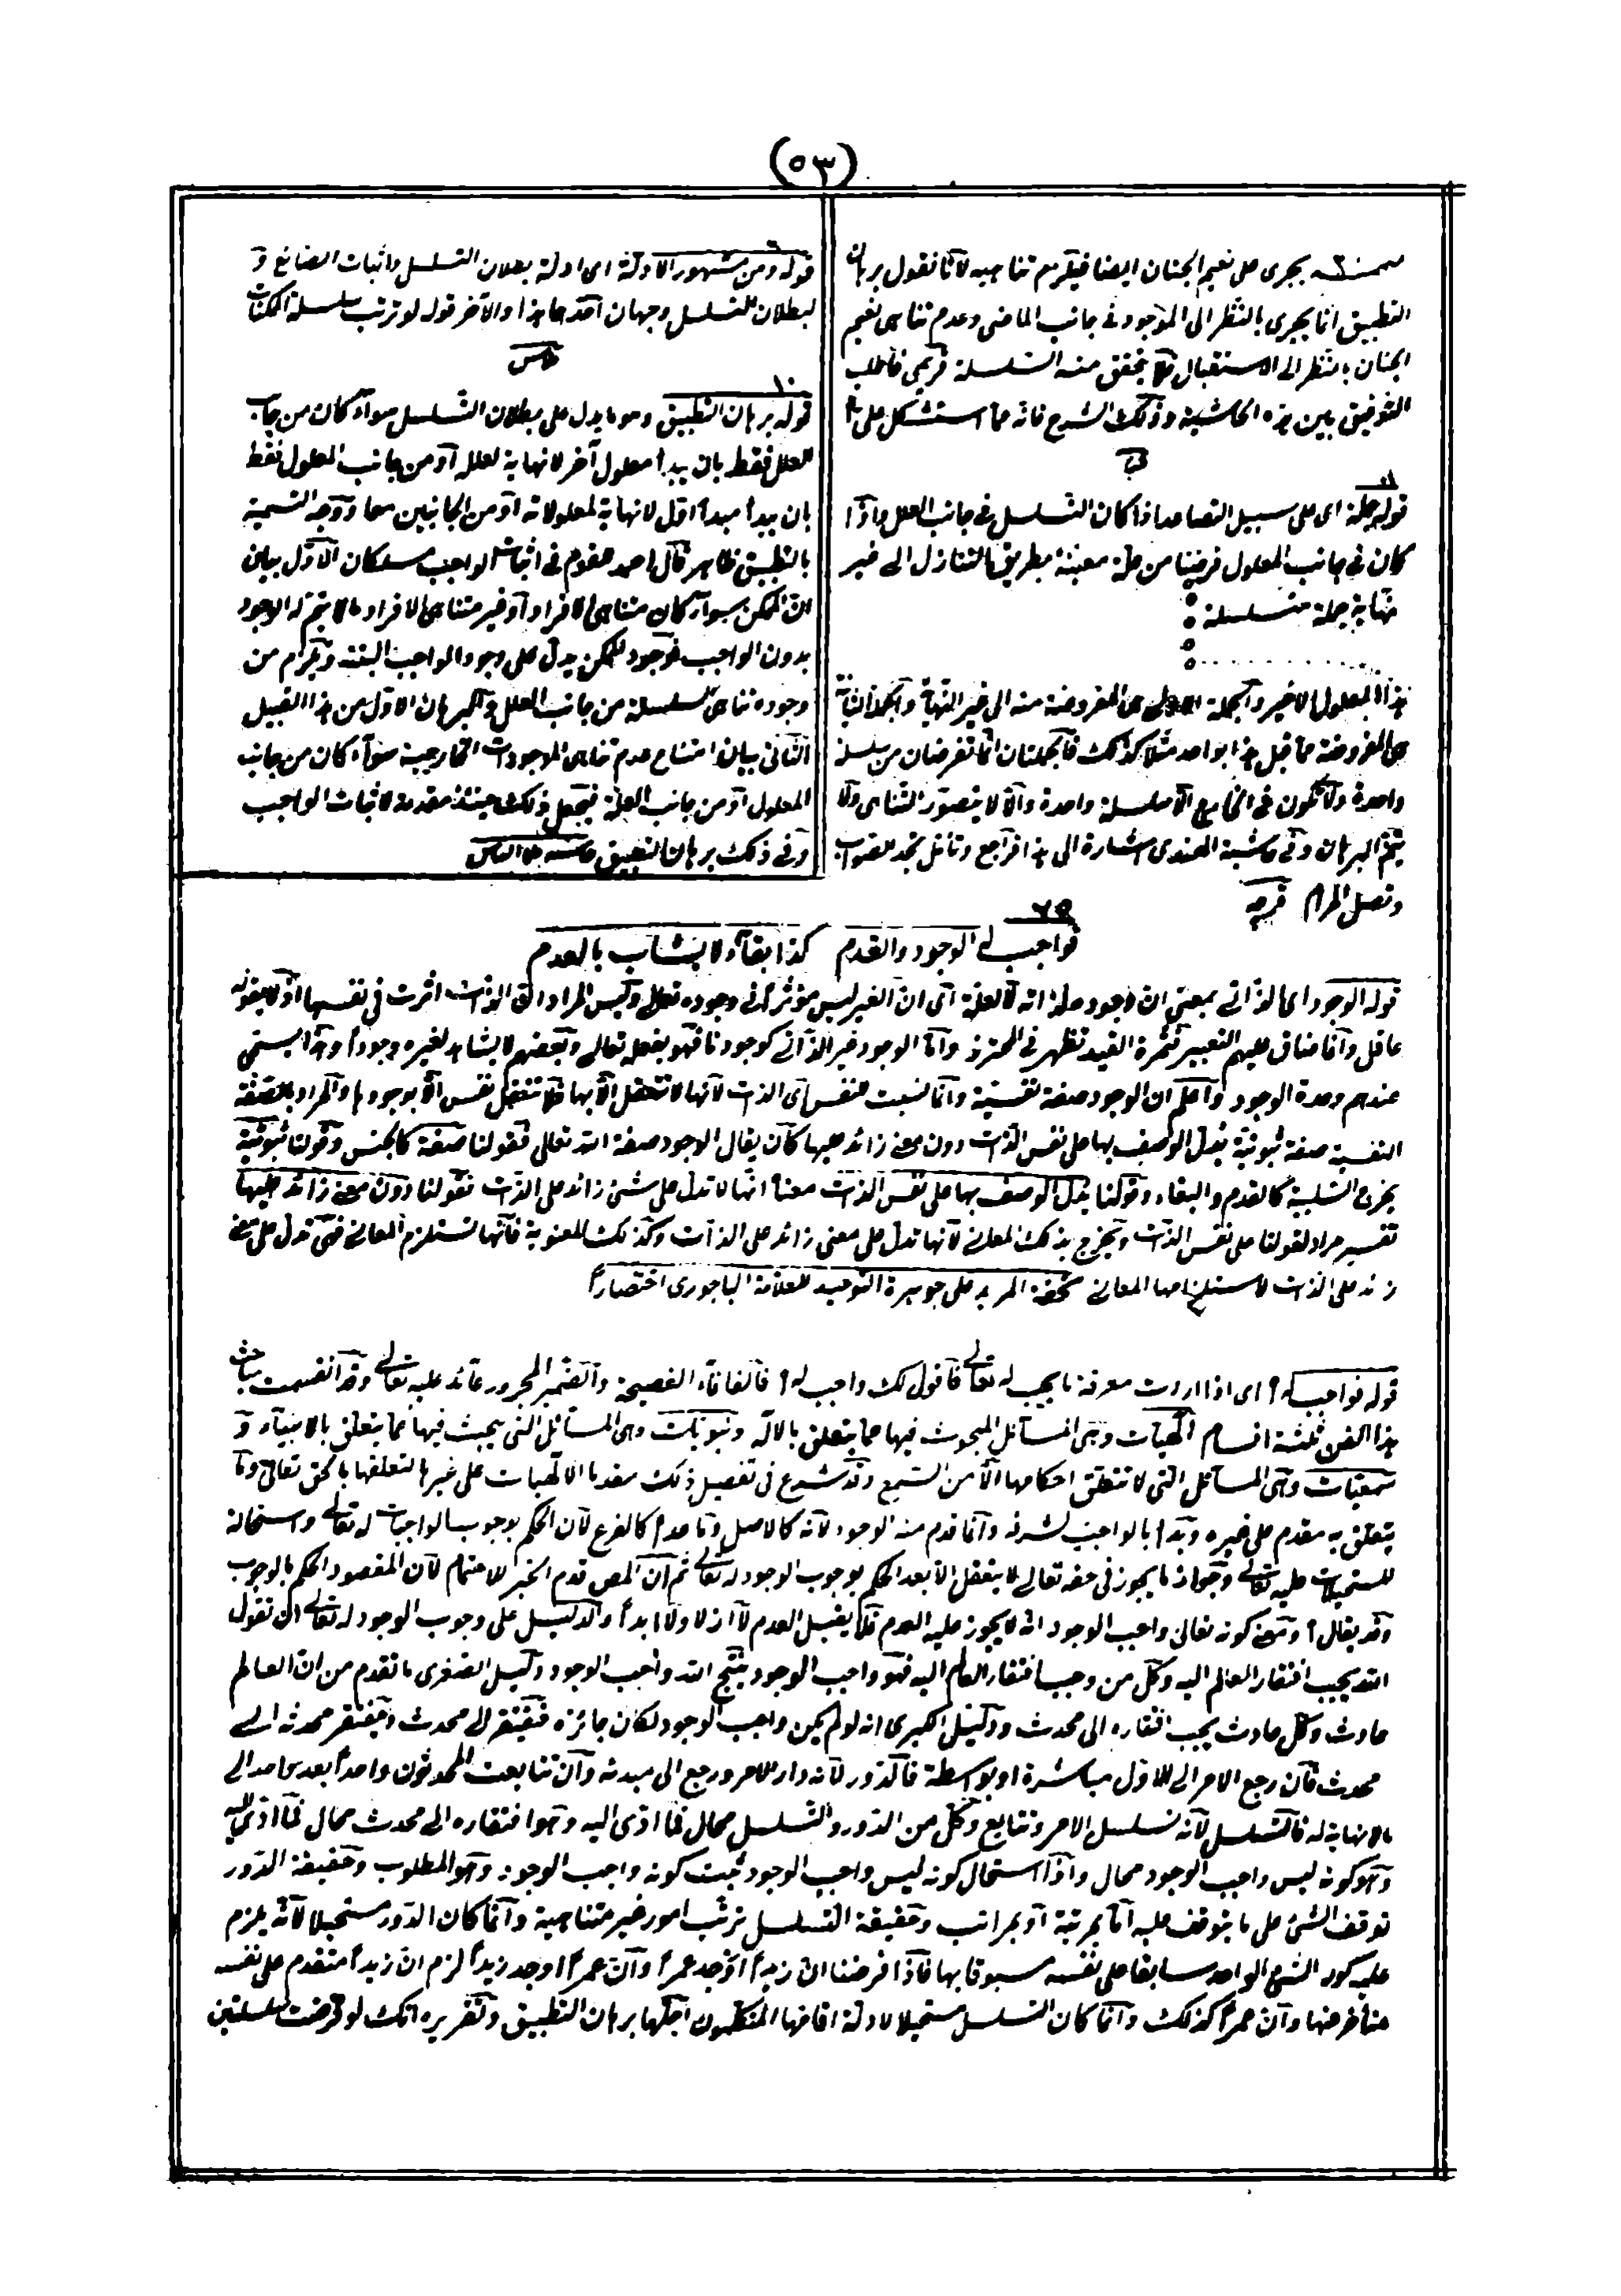 (٥٣)
يجرى على نعيم الجنان ايضا فيلزم تناهيه لانا نقول برهان
التطبيق انما يجرى بالنظر الى الموجود فى جانب الماضى وعدم تناهى نعيم
الجنان بالنظر الى الاستقبال فلا يتحقق منه السلسلة قريمى فاطلب
التوفيق بين هذه الحاشية وذلك الشرح فانه مما استشكل على
قوله جملة اى على سبيل التصاعد اذا كان التسلسل فى جانب العلل واذا
كان فى جانب المعلول فرضنا من علة معينة بطريق التنازل الى غير
نهاية جملة متسلسلة
هذا المعلول الاخير والجملة الاولى هى المفروضة منه الى غير النهاية والجملة الثانية
هى المفروضة مما قبل هذا بواحد مثلا كذلك فالجملتان انما تفرضان من سلسلة
واحدة ولا تكون فى الخارج الا سلسلة واحدة والا لا يتصور التناهى ولا
يتم البرهان وفى حاشية الهندى اشارة الى هذا فراجع وتأمل تجد الصواب
وتصل المرام
قوله ومن مشهور الادلة اى ادلة بطلان التسلسل واثبات الصانع و
لبطلان التسلسل وجهان احدهما هذا والآخر قوله لو ترتب سلسلة الممكنات
١٠
قوله برهان التطبيق وهو ما يدل على بطلان التسلسل سواء كان من جانب
العلل فقط بان يبدأ معلول آخر لا نهاية لعلله او من جانب المعلول فقط
بان يبدأ مبدأ اول لا نهاية لمعلولاته او من الجانبين معا ووجه التسمية
بالتطبيق ظاهر قال احمد فى اثبات الواجب مسلكان الاول بيان
ان الممكن سواء كان متناهى الافراد او غير متناهى الافراد مالا يتم له الوجود
بدون الواجب فوجود الممكن يدل على وجود الواجب البتة ويلزم من
وجوده تناهى السلسلة من جانب العلل والبرهان الاول من هذا القبيل
الثانى بيان امتناع عدم تناهى الموجودات الخارجية سواء كان من جانب
المعلول او من جانب العلة فيجعل ذلك حينئذ مقدمة لاثبات الواجب
وفى ذلك برهان التطبيق
فواجب له الوجود والقدم كذا بقاء لا يشاب بالعدم
قوله الوجود اى الذاتى بمعنى ان وجوده لذاته لا لعلة اى ان الغير ليس مؤثرا فى وجوده تعالى وليس المراد ان الذات اثرت فى نفسها اذ لا يقوله
عاقل وانما ضاق عليهم التعبير فثمرة القيد تظهر فى المحترز واما الوجود غير الذاتى كوجودنا فهو بفعله تعالى وبعضهم لا يشاهد لغيره وجودا وهذا يسمى
عندهم وحدة الوجود واعلم ان الوجود صفة نفسية وانما نسبت للنفس اى الذات لانها لا تتعقل الا بها فلا تتعقل نفس الا بوجودها والمراد بالصفة
النفسية صفة ثبوتية يدل الوصف بها على نفس الذات دون معنى زائد عليها كأن يقال الوجود صفة الله تعالى فقولنا صفة كالجنس وقولنا ثبوتية
يخرج السلبية كالقدم والبقاء وقولنا يدل الوصف بها على نفس الذات معناه انها لا تدل على شئ زائد على الذات فقولنا دون معنى زائد عليها
تفسير مراد لقولنا على نفس الذات ويخرج بذلك المعانى لانها تدل على معنى زائد على الذات وكذلك المعنوية فانها تستلزم المعانى فهى تدل على معنى
زائد على الذات لاستلزامها المعانى تحفة المريد على جوهرة التوحيد للعلامة الباجورى اختصارا
قوله فواجب له اى اذا اردت معرفة ما يجب له تعالى فاقول لك واجب له فالفاء فاء الفصيحة والضمير المجرور عائد عليه تعالى وقد انقسمت مباحث
هذا الفن ثلثة اقسام الهيات وهى المسائل المبحوث فيها عما يتعلق بالاله ونبويات وهى المسائل التى يبحث فيها عما يتعلق بالانبياء و
سمعيات وهى المسائل التى لا تتلقى احكامها الا من السمع وقد شرع فى تفصيل ذلك مقدما الالهيات على غيرها لتعلقها بالحق تعالى وما
يتعلق به مقدم على غيره وبدأ بالواجب لشرفه وانما قدم منه الوجود لانه كالاصل وما عداه كالفرع لان الحكم بوجوب الواجبات له تعالى واستحالة
المستحيلات عليه تعالى وجواز ما يجوز فى حقه تعالى لا يتعقل الا بعد الحكم بوجوب الوجود له تعالى ثم ان المص قدم الخبر للاهتمام لان المقصود الحكم بالوجوب
وقد يقال ومعنى كونه تعالى واجب الوجود انه لا يجوز عليه العدم فلا يقبل العدم لا ازلا ولا ابدا والدليل على وجوب الوجود له تعالى ان تقول
الله يجب افتقار العالم اليه وكل من وجب افتقار العالم اليه فهو واجب الوجود ينتج الله واجب الوجود دليل الصغرى ما تقدم من ان العالم
حادث وكل حادث يجب افتقاره الى محدث ودليل الكبرى انه لو لم يكن واجب الوجود لكان جائزه فيفتقر الى محدث ويفتقر محدثه الى
محدث فان رجع الامر الى الاول مباشرة او بواسطة فالدور لانه دار الامر ورجع الى مبدئه وان تتابعت المحدثون واحدا بعد واحد الى
مالا نهاية له فالتسلسل لانه تسلسل الامر وتتابع وكل من الدور والتسلسل محال فما ادى اليه وهو افتقاره الى محدث محال فما ادى اليه
وهو كونه ليس واجب الوجود محال واذا استحال كونه ليس واجب الوجود ثبت كونه واجب الوجود وهو المطلوب وحقيقة الدور
توقف الشئ على ما يتوقف عليه اما بمرتبة او بمراتب وحقيقة التسلسل ترتب امور غير متناهية وانما كان الدور مستحيلا لانه يلزم
عليه كون الشئ الواحد سابقا على نفسه مسبوقا بها فاذا فرضنا ان زيدا اوجد عمرا وان عمرا اوجد زيدا لزم ان زيدا متقدم على نفسه
متأخر عنها وان عمرا كذلك وانما كان التسلسل مستحيلا لادلة اقامها المتكلمون اجلها برهان التطبيق وتقريره انك لو فرضت سلسلتين